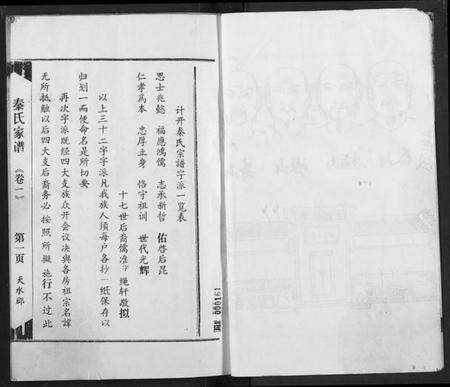 计开秦氏宗谱字派一览表
思士兆懿　福应鸿儒　志承新哲　佑启后昆
仁孝为本　忠厚立身　恪守祖训　世代光辉
十七世后裔儒准字绳轩敬拟
以上三十二字字派凡我族人须每户各抄一纸保存以
归划一而使命名是所切要
再次字派既经四大支族众开会议决与各房祖宗名讳
无所抵触以后四大支后裔务必按照所拟施行不过此
秦氏家谱
《卷一》
第一页
天水郡
000161